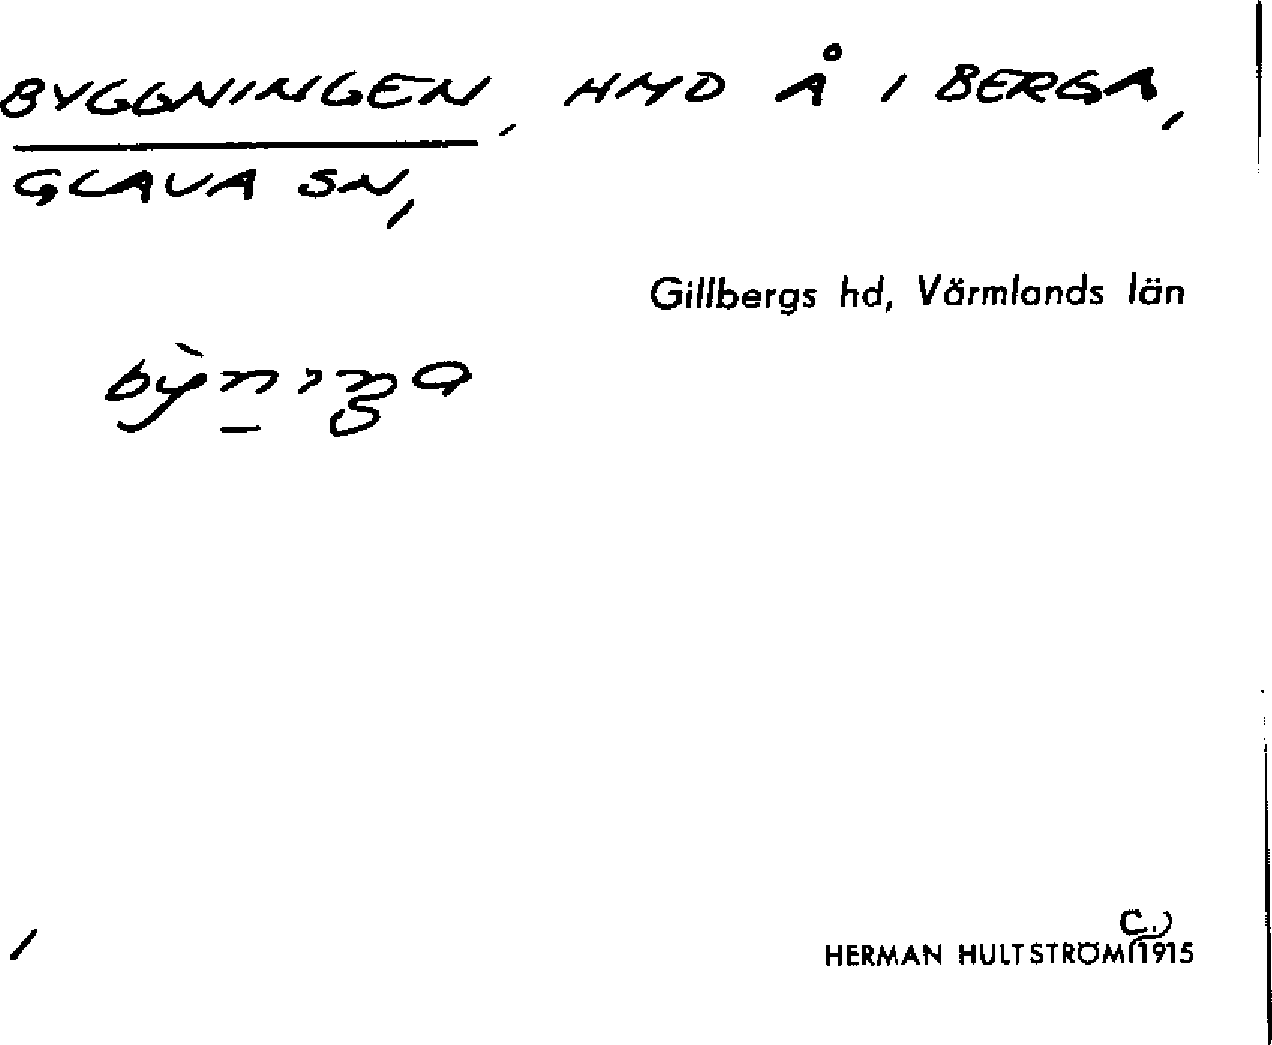 BYGGNINGEN, HMD Å I BERGA,
GLAVA SN,
Gillbergs hd, Värmlands län
HERMAN HULTSTRÖM C. 1915
/